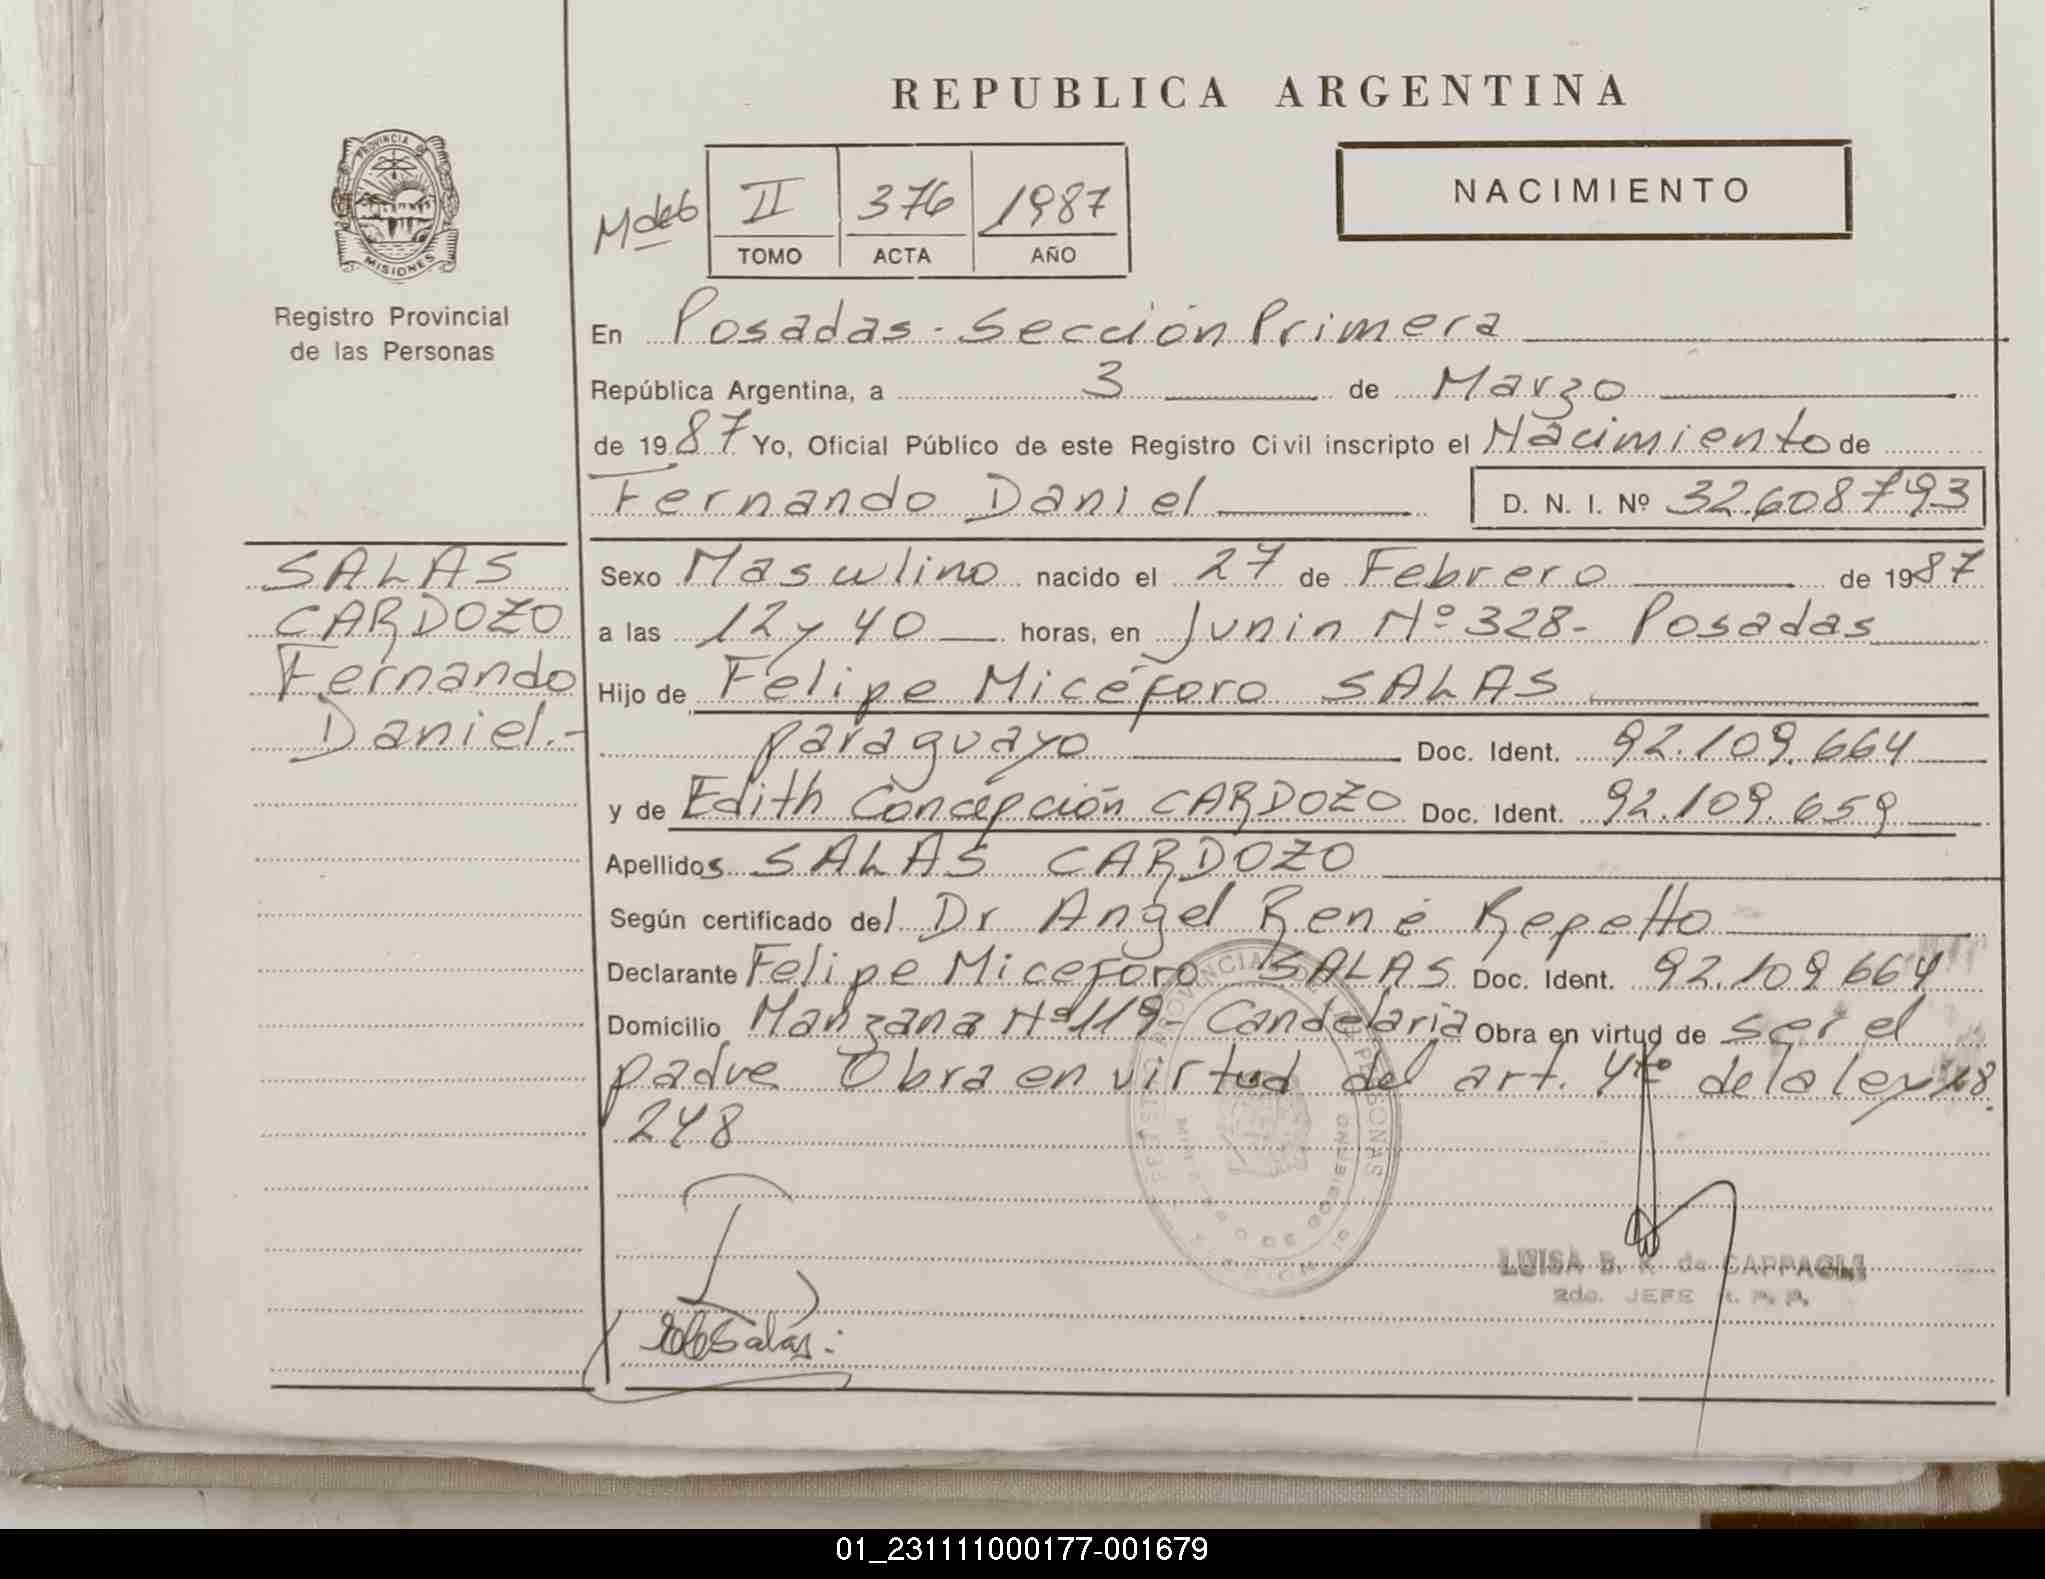 REPUBLICA ARGENTINA
PROVINCIA DE
MISIONES
Registro Provincial
de las Personas
II 376 1987
TOMO ACTA AÑO
NACIMIENTO
En Posadas - Sección Primera
República Argentina, a 3 de Marzo
de 1987 Yo, Oficial Público de este Registro Civil inscripto el Nacimiento de
Fernando Daniel D. N. I. Nº 32.608793
SALAS
CARDOZO
Fernando
Daniel.-
Sexo Masculino nacido el 27 de Febrero de 1987
a las 12 y 40 horas, en Junin Nº 328- Posadas
Hijo de Felipe Nicéforo SALAS
paraguayo Doc. Ident. 92.109.664
y de Edith Concepción CARDOZO Doc. Ident. 92.109.659
Apellidos SALAS CARDOZO
Según certificado del Dr Angel René Repetto
Declarante Felipe Niceforo SALAS Doc. Ident. 92.109664
Domicilio Manzana Nº 119- Candelaria Obra en virtud de ser el
padre Obra en virtud del art. 4to de la ley 18.
248
LUISA B. K. de CAPPAGLI
2do. JEFE R. P. P.
Salas
01_231111000177-001679